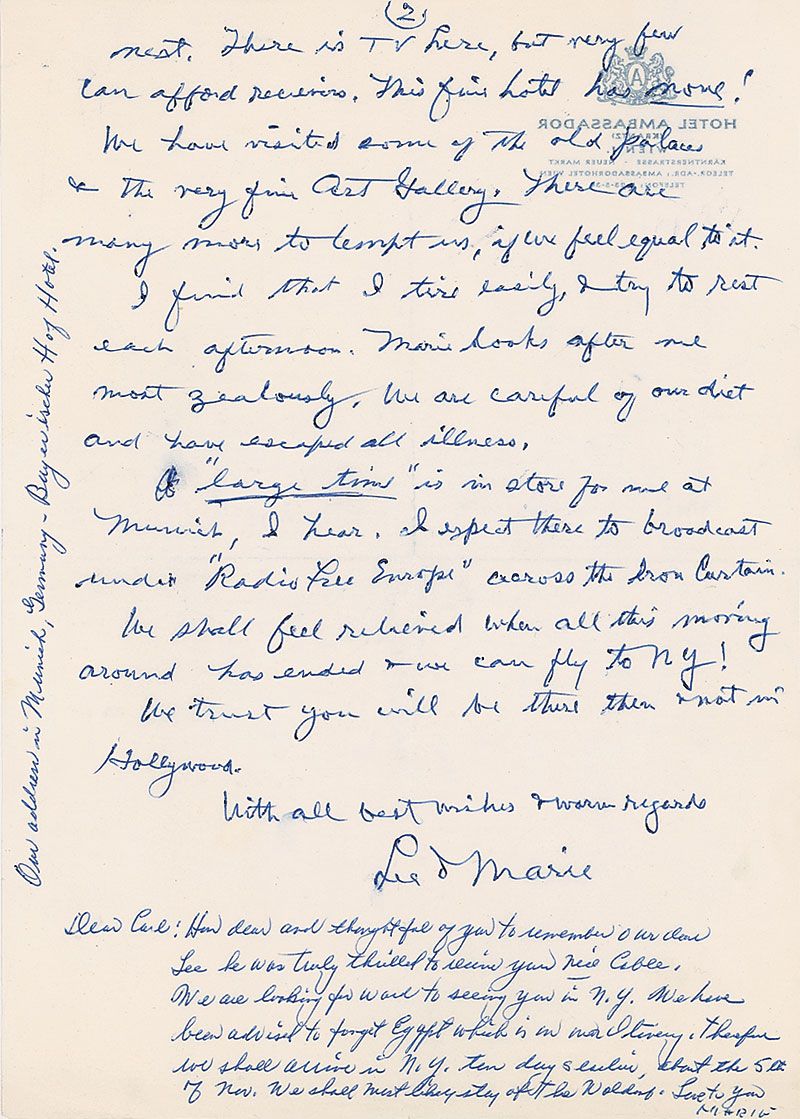 (2)
next. There is TV here, but very few
can afford receivers. This fine hotel has none!
HOTEL AMBASSADOR
(KRANTZ)
WIEN I.
KÄRNTNERSTRASSE · NEUER MARKT
TELEGR.-ADR.: AMBASSADORHOTEL WIEN
TELEFON:
We have visited some of the old palaces
& the very fine Art Gallery. There are
many more to tempt us, if we feel equal to it.
I find that I tire easily, & try to rest
each afternoon. Marie looks after me
most zealously. We are careful of our diet
and have escaped all illness.
A "large time" is in store for me at
Munich, I hear. I expect there to broadcast
under "Radio Free Europe" across the Iron Curtain.
We shall feel relieved when all this moving
around has ended & we can fly to NY!
We trust you will be there then & not in
Hollywood.
With all best wishes & warm regards
Lee & Marie
Dear Carl! How dear and thoughtful of you to remember our dear
Lee he was truly thrilled to receive your nice Cable.
We are looking forward to seeing you in N.Y. We have
been advised to forget Egypt which is on our Itinery. Therefore
we shall arrive in N.Y. ten days earlier, about the 5th
of Nov. We shall most likely stay at the Waldorf. Love to you
MARIE
Our address in Munich, Germany - Bayerischer Hof Hotel.